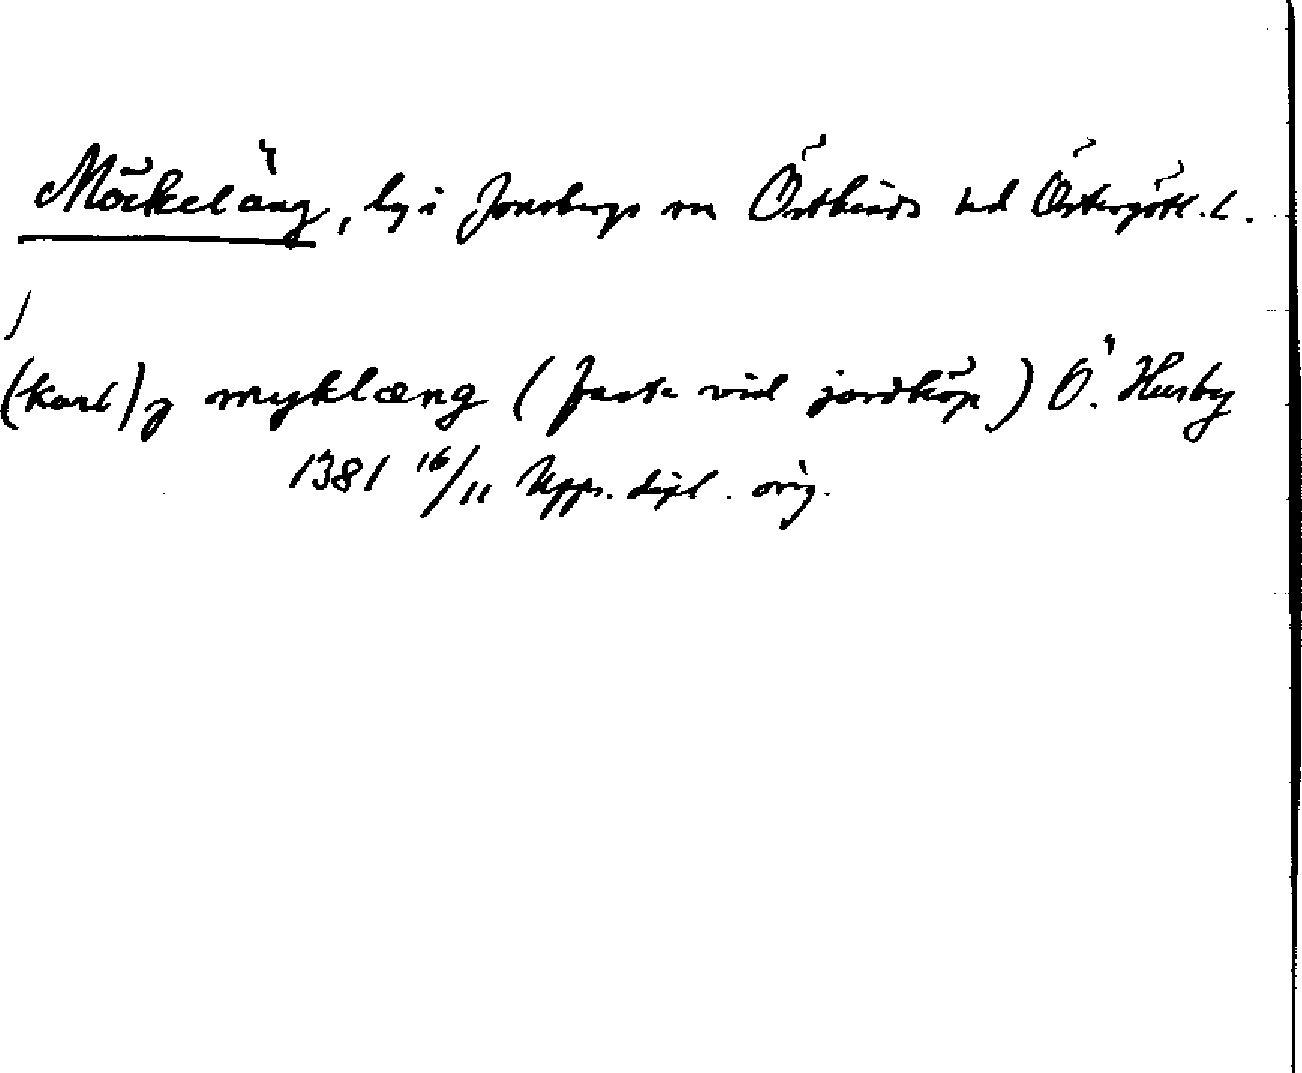 Möckeläng, by i Jonsbergs sn Östkinds hd Östergötl. l.
(karl) j myklæng (faste vid jordköp) Ö. Husby
1381 16/11 Upps. dipl. orig.